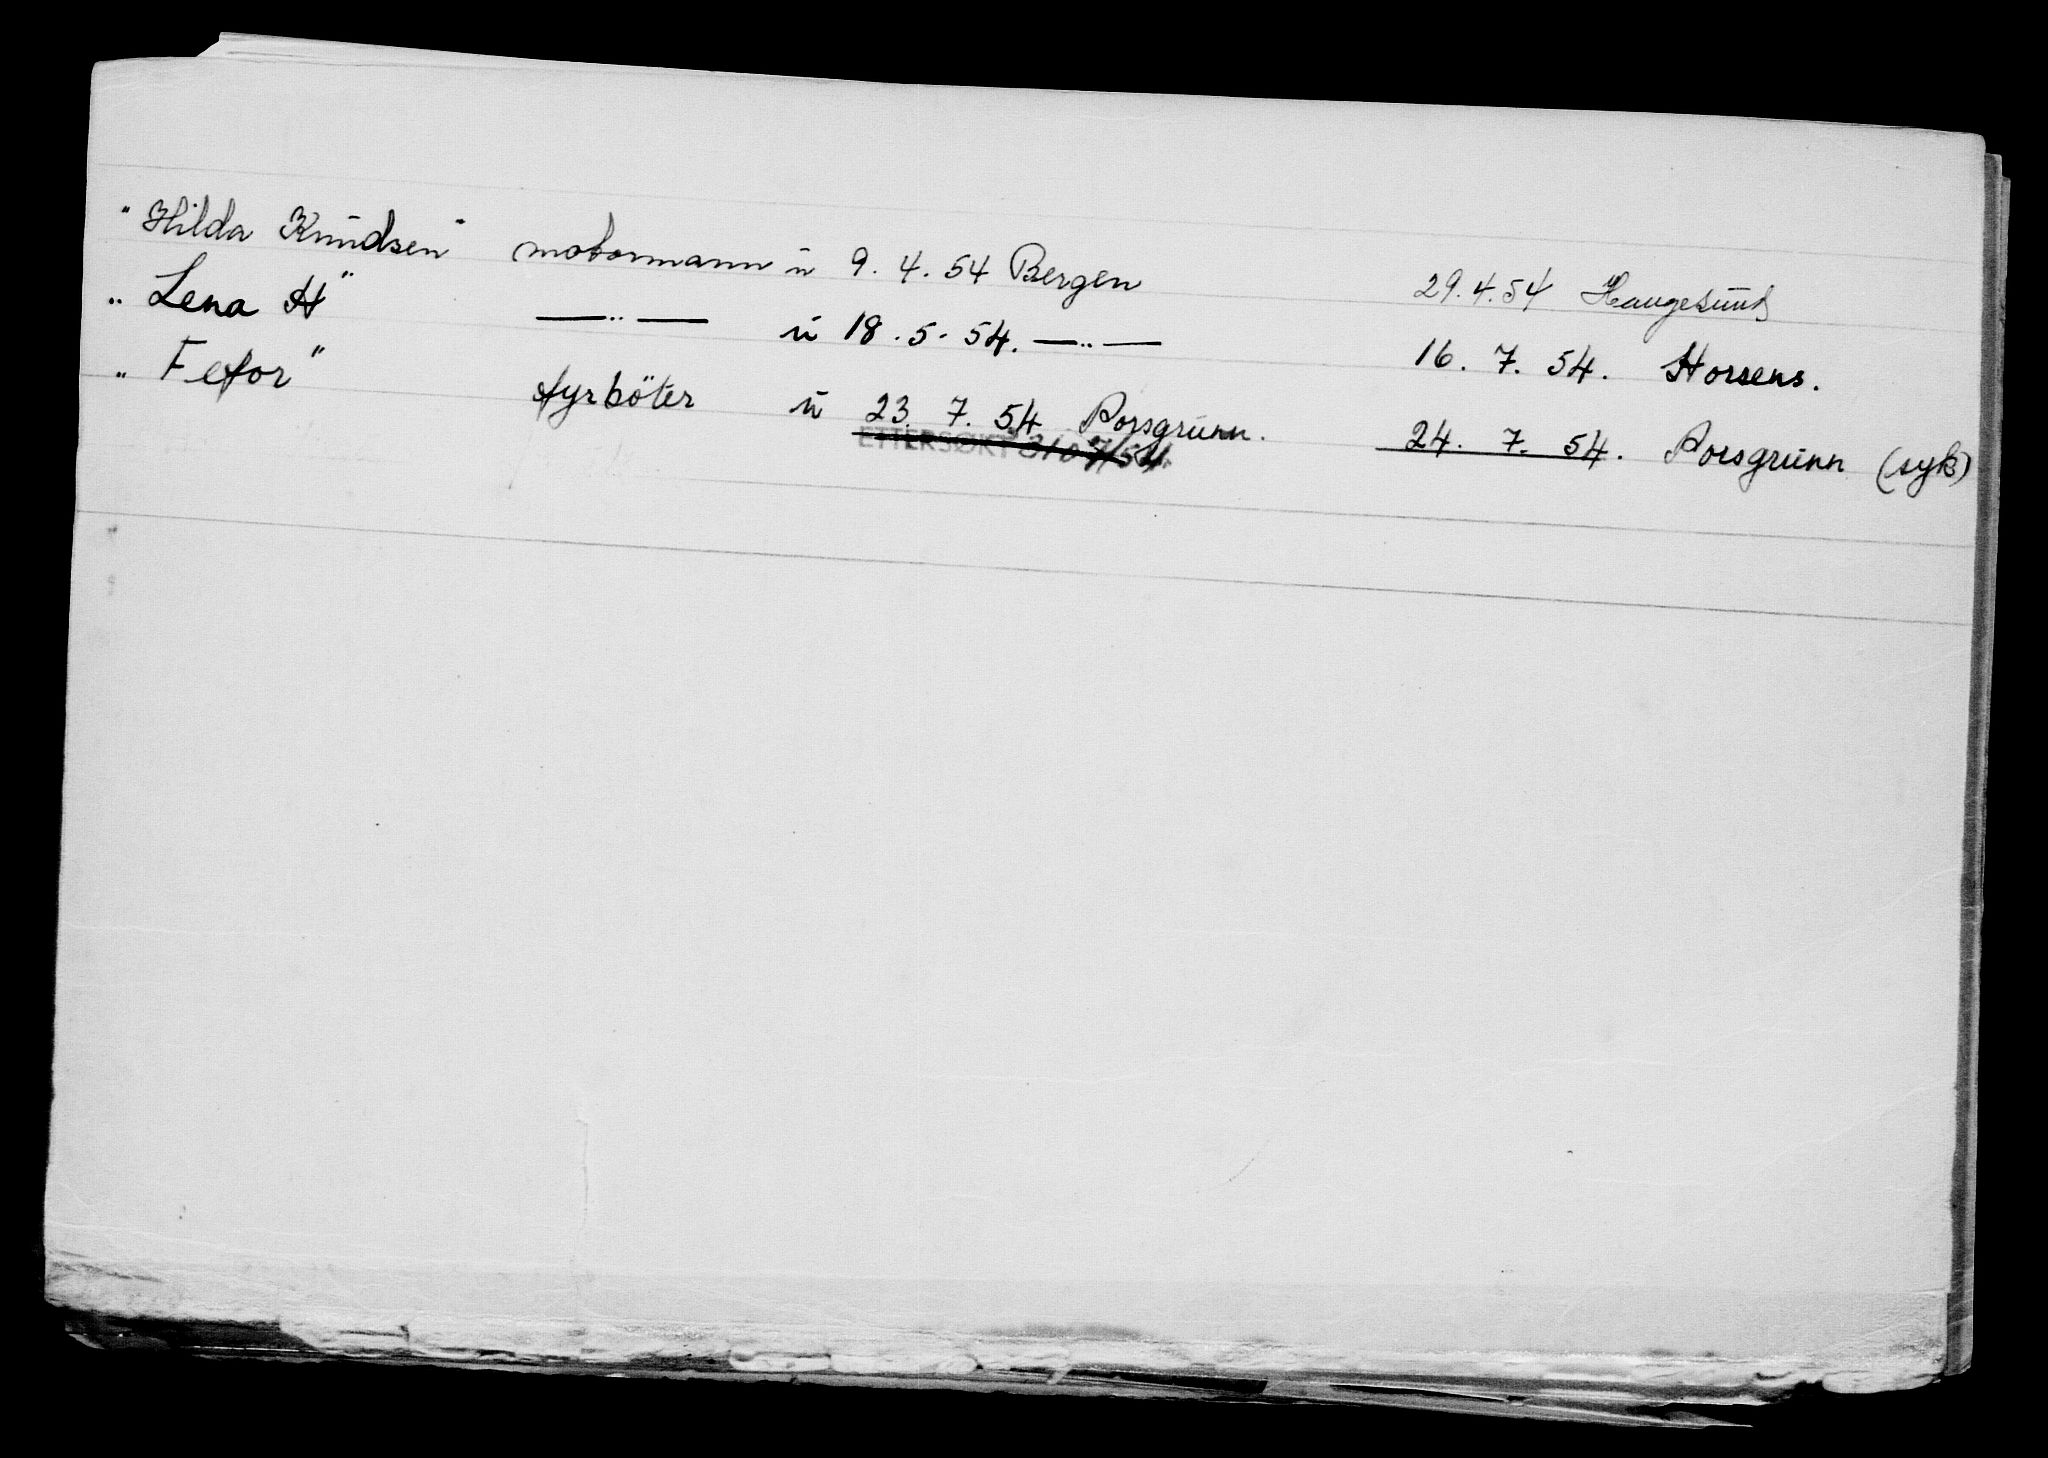 "Hilda Knudsen" motormann u 9. 4. 54 Bergen 29. 4. 54 Haugesund
"Lena H" —"— u 18. 5. 54. —"— 16. 7. 54. Horsens.
"Fefor" fyrböter u 23. 7. 54 Porsgrunn. 24. 7. 54. Porsgrunn (syk)
ETTERSØKT 31/7/54